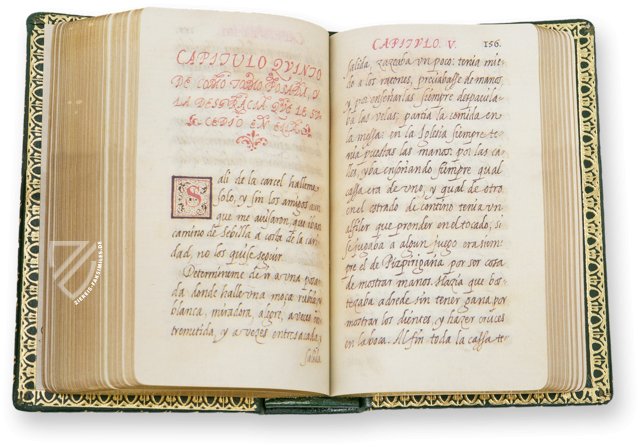 CAPITULO QVINTO
DE COMO TOMO POSADA, Y
LA DESGRACIA QVE LE SU-
CEDIO EN ELLA
Sali de la carcel halleme
solo, y sin los amigos aun
que me auisaron, que iban
camino de Sebilla a costa de la cari
dad, no los quise seguir.
Determineme de ir a una posa
da donde halle una moça rubia, y
blanca, miradora, alegre, a veces en
tremetida, y a vezes entresacada, y
salida
CAPITVLO. V. 156.
salida, zazeaba un poco: tenia mie
do a los ratones, preciabasse de manos
y por enseñarlas siempre despauila
ba las velas, partia la comida en
la messa: en la Iglesia siempre te
nia puestas las manos: por las ca
lles, yba enseñando siempre qual
cassa era de uno, y qual de otro
en el estrado de contino tenia un
alfiler que prender en el tocado; si
se jugaba a algun juego era siem
pre el de Pizpirigana por ser cosa
de mostrar manos. Hazia que bo-
tezaba adrede sin tener gana por
mostrar los dientes, y hazer cruces
en la boca. Al fin toda la cassa te
ZIEREIS-FAKSIMILES.DE